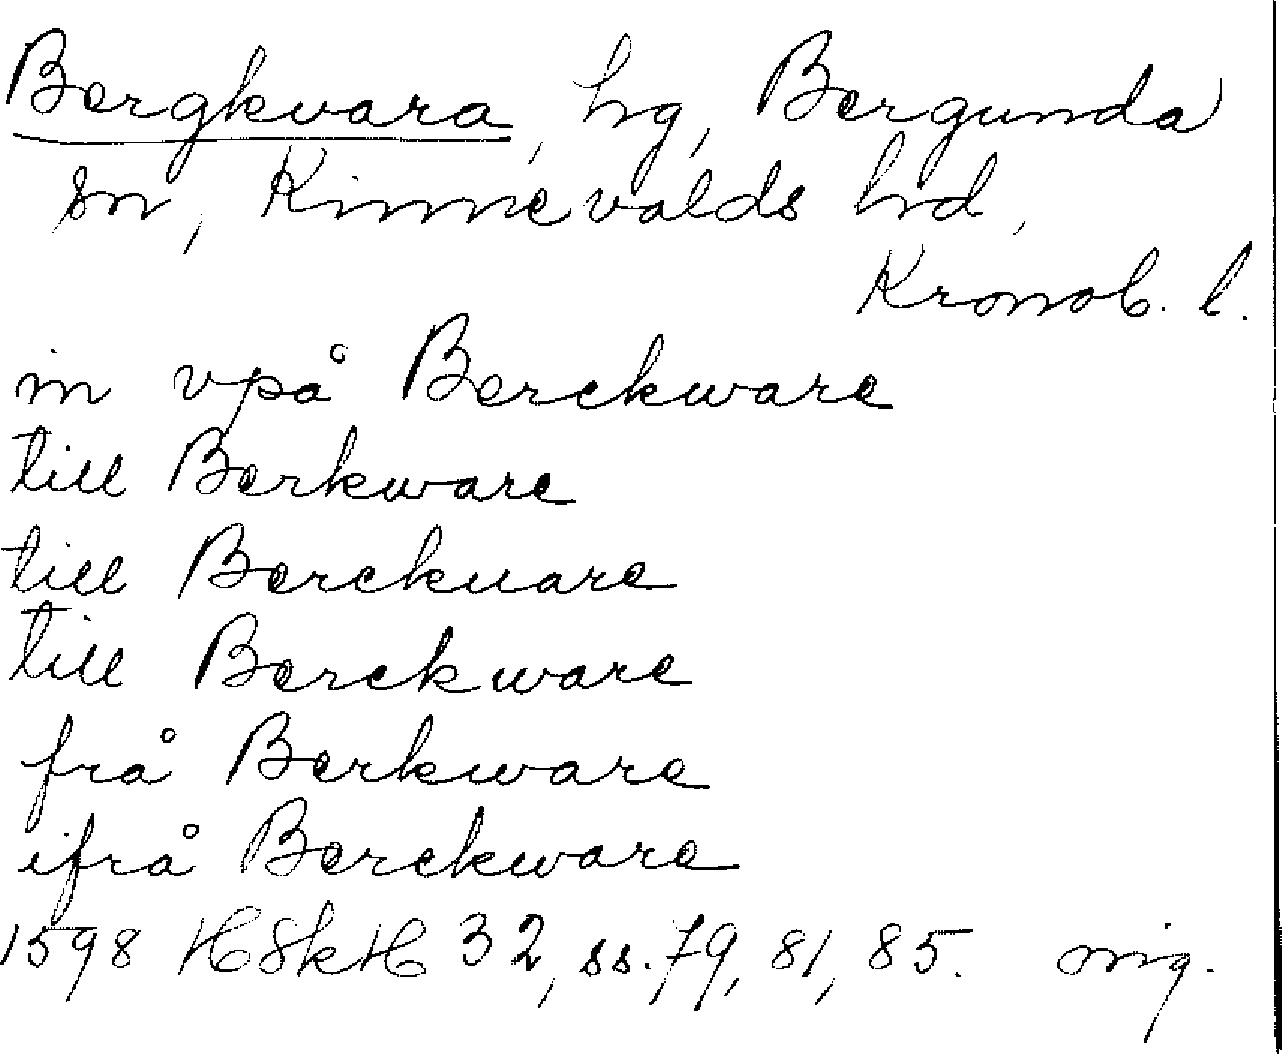 Bergkvara, hg, Bergunda
sn, Kinnevalds hrd,
Kronob. l.
in vpå Berckware
till Berkware
till Berckuare
till Berckware
frå Berkware
ifrå Berckware
1598 HSkH 32, ss. 79, 81, 85. orig.